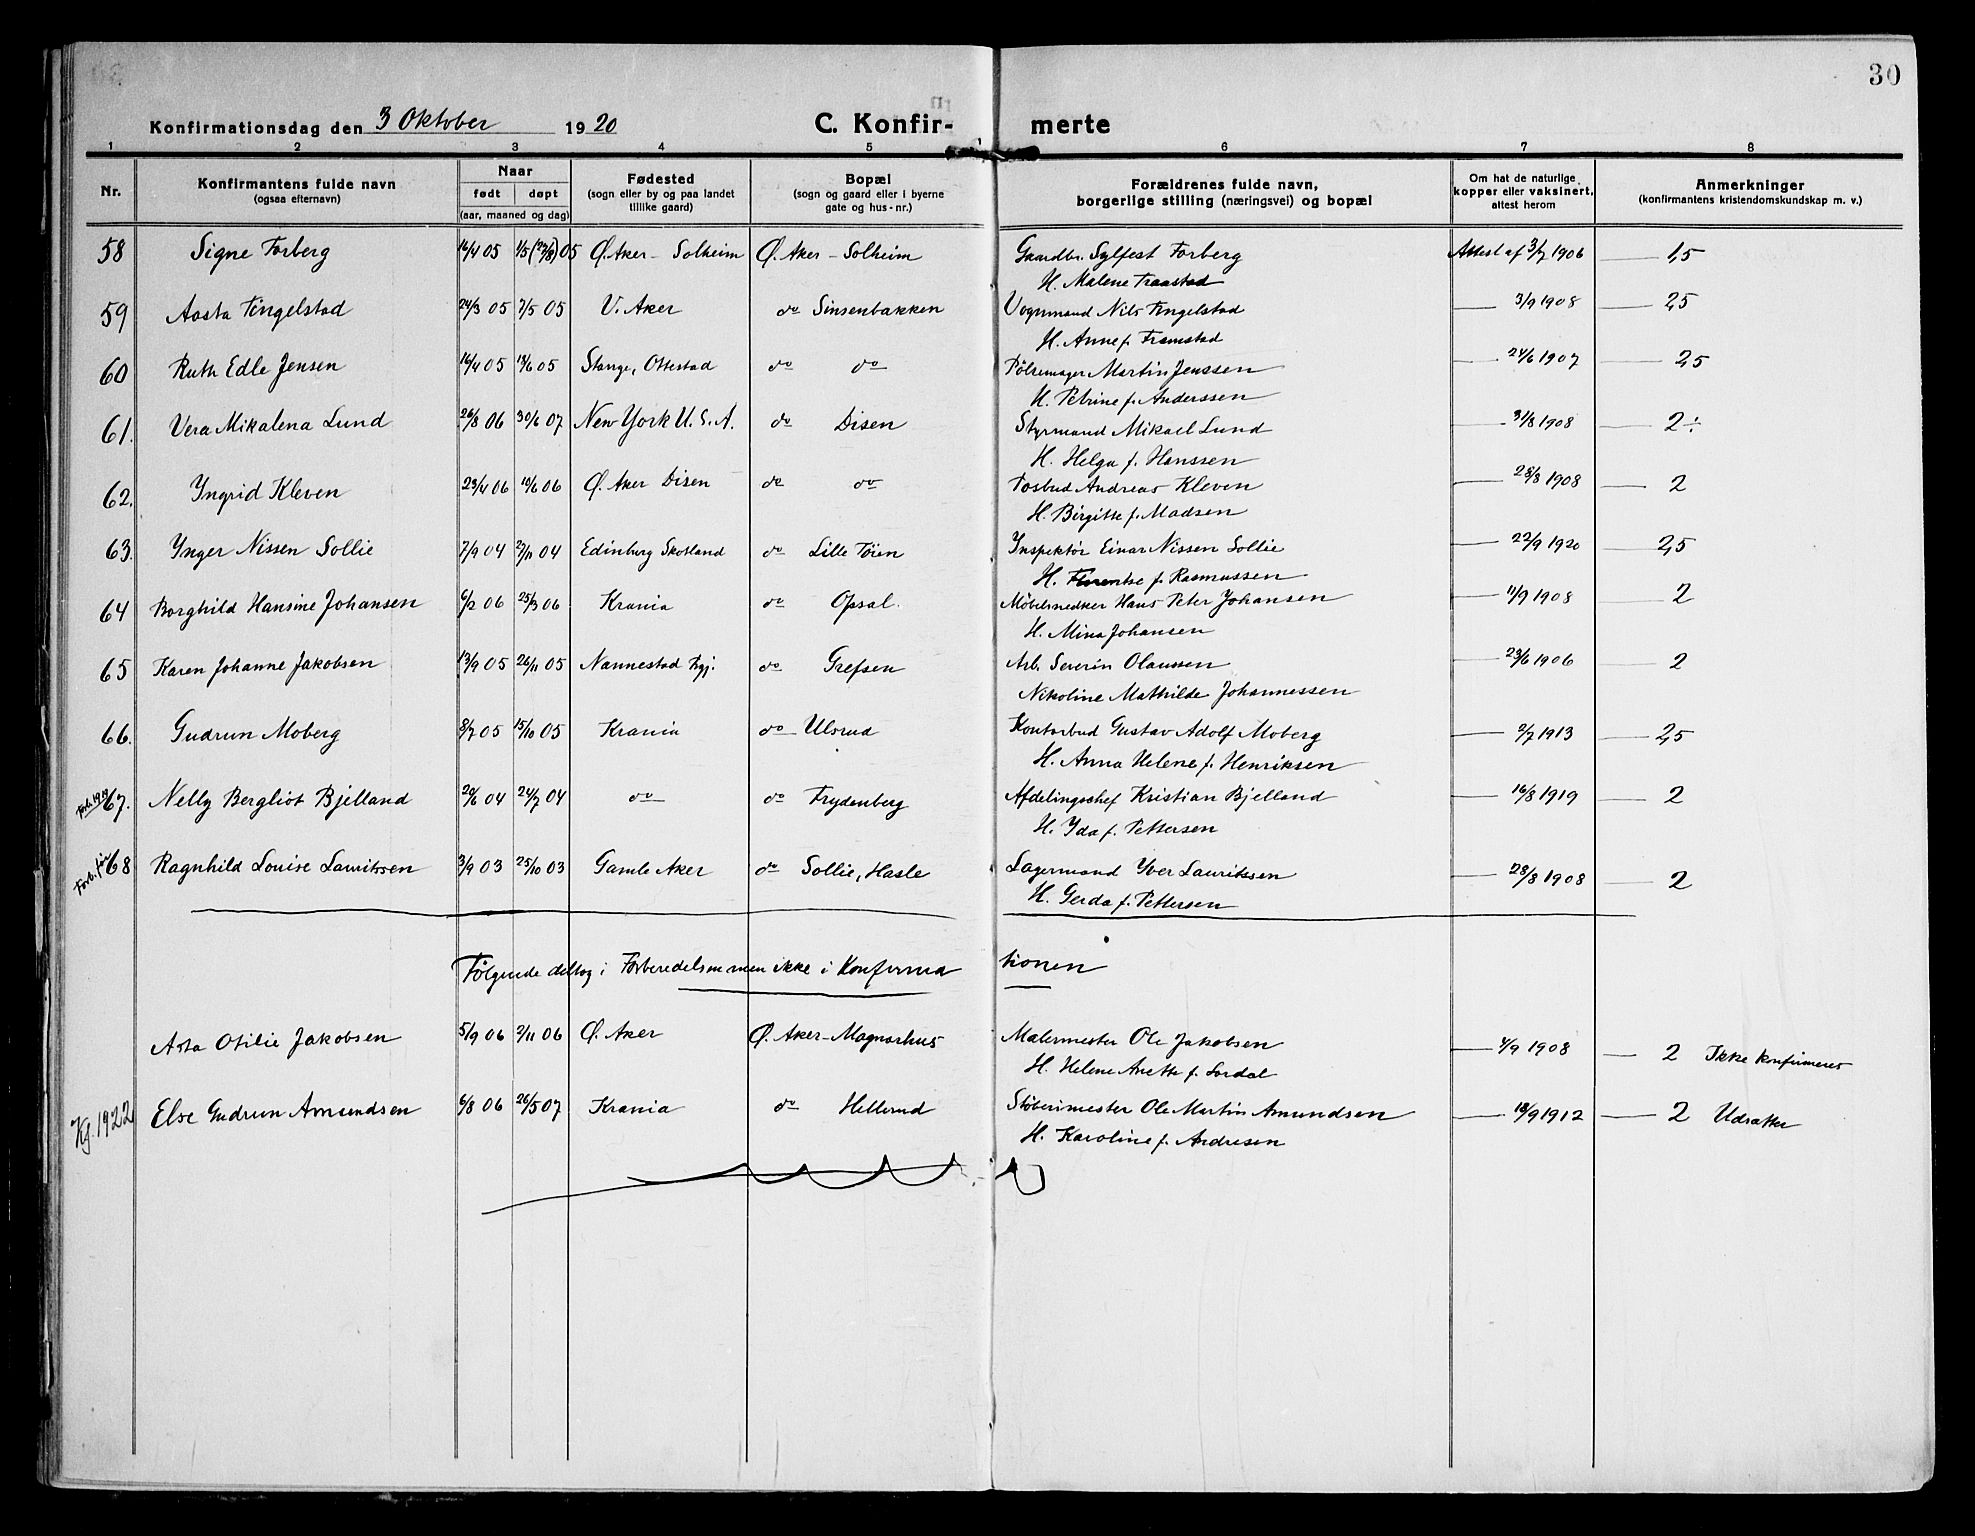 30
Konfirmationsdag den 3 Oktober 1920 C. Konfir- merte
1 2 3 4 5 6 7 8
Nr. Konfirmantens fulde navn (ogsaa efternavn) Naar født døpt (aar, maaned og dag) Fødested (sogn eller by og paa landet tillike gaard) Bopæl (sogn og gaard eller i byerne gate og hus-nr.) Forældrenes fulde navn, borgerlige stilling (næringsvei) og bopæl Om hat de naturlige kopper eller vaksinert, attest herom Anmerkninger (konfirmantens kristendomskundskap m. v.)
58 Signe Forberg 16/4 05 1/5 (27/8) 05 Ø. Aker - Solheim Ø. Aker - Solheim Gaardbr. Sylfest Forberg Attest af 3/7 1906 — 1,5
H. Malene Traastad
59 Aasta Tingelstad 24/3 05 7/5 05 V. Aker do Sinsenbakken Vognmand Nils Tingelstad — 3/9 1908 — 2,5
H. Anne f. Framstad
60 Ruth Edle Jensen 16/4 05 18/6 05 Stange, Ottestad do do Pølsemager Martin Jenssen — 24/6 1907 — 2,5
H. Petrine f. Anderssen
61. Vera Mikalena Lund 26/8 06 30/6 07 New York U.S.A. do Disen Styrmand Mikael Lund — 31/8 1908 — 2÷
H. Helga f. Hanssen
62. Yngrid Kleven 23/4 06 10/6 06 Ø. Aker Disen do do Posbud Andreas Kleven — 28/8 1908 — 2
H. Birgitte f. Madsen
63. Ynger Nissen Sollie 7/9 04 27/11 04 Edinburg Skotland do Lille Tøien Inspektør Einar Nissen Sollie — 22/9 1920 — 2,5
H. f. Rasmussen
64 Borghild Hansine Johansen 6/2 06 25/3 06 Krania do Opsal. Møbelsnedker Hans Peter Johansen — 11/9 1908 — 2
H. Mina Johansen
65 Karen Johanne Jakobsen 13/9 05 26/11 05 Nannestad do Grefsen Arb. Severin Olaussen — 23/6 1906 — 2
Nikoline Mathilde Johannessen
66. Gudrun Moberg 8/7 05 15/10 05 Krania do Ulsrud Kontorbud Gustav Adolf Moberg — 2/7 1913 — 2,5
H. Anna Helene f. Henriksen
Forb. 1919 67. Nelly Bergliot Bjelland 20/6 04 24/7 04 do do Frydenberg Afdelingschef Kristian Bjelland — 16/8 1919 — 2
H. Yda f. Pettersen
Forb. før 68 Ragnhild Louise Lauritssen 3/9 03 25/10 03 Gamle Aker do Sollie, Hasle Lagermand Yver Lauritssen — 28/8 1908 — 2
H. Gerda f. Pettersen
Følgende deltog i Forberedelsen men ikke i Konfirma tionen
Asta Otilie Jakobsen 5/9 06 2/11 06 Ø. Aker Ø. Aker - Magnarhus Malermester Ole Jakobsen — 4/9 1908 — 2 Ikke konfirmeres
H. Helene Anette f. Sordal
Kf. 1922 Else Gudrun Amundsen 6/8 06 26/5 07 Krania do Hellerud Støberimester Ole Martin Amundsen — 18/9 1912 — 2 Udsatter
H. Karoline f. Andresen